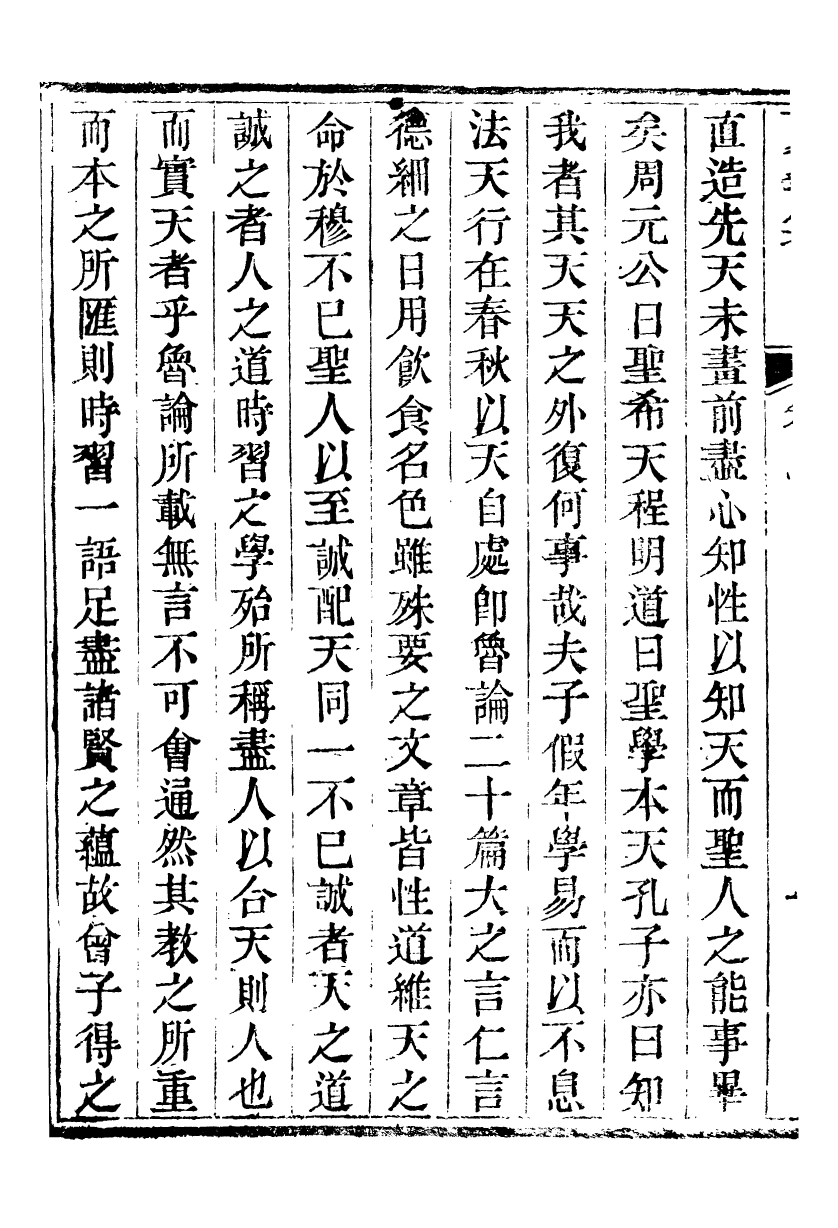 直造先天未畫前盡心知性以知天而聖人之能事畢
矣周元公曰聖希天程明道曰聖學本天孔子亦曰知
我者其天天之外復何事哉夫子假年學易而以不息
法天行在春秋以天自處卽魯論二十篇大之言仁言
德細之日用飲食名色雖殊要之文章皆性道維天之
命於穆不已聖人以至誠配天同一不已誠者天之道
誠之者人之道時習之學殆所稱盡人以合天則人也
而實天者乎魯論所載無言不可會通然其教之所重
而本之所匯則時習一語足盡諸賢之蘊故曾子得之